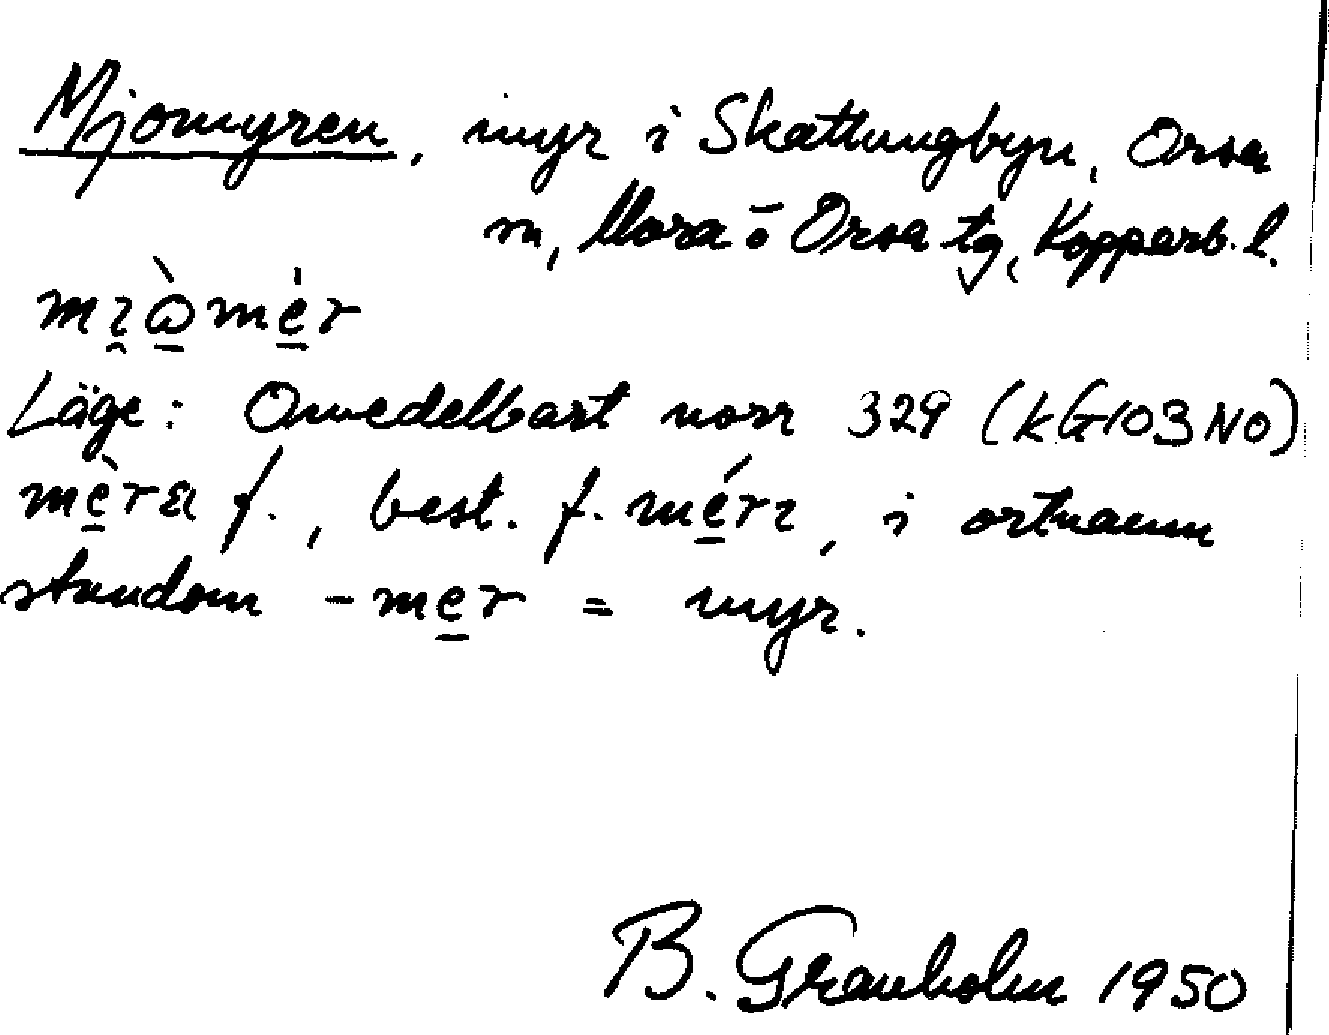 Mjomyren, myr i Skattungbyn, Orsa
sn, Mora o Orsa tg, Kopparb. l.
Läge: Omedelbart norr 329 (KG103NO)
f., best. f. i ortnamn
stundom -me̠r = myr.
B. Granholm 1950